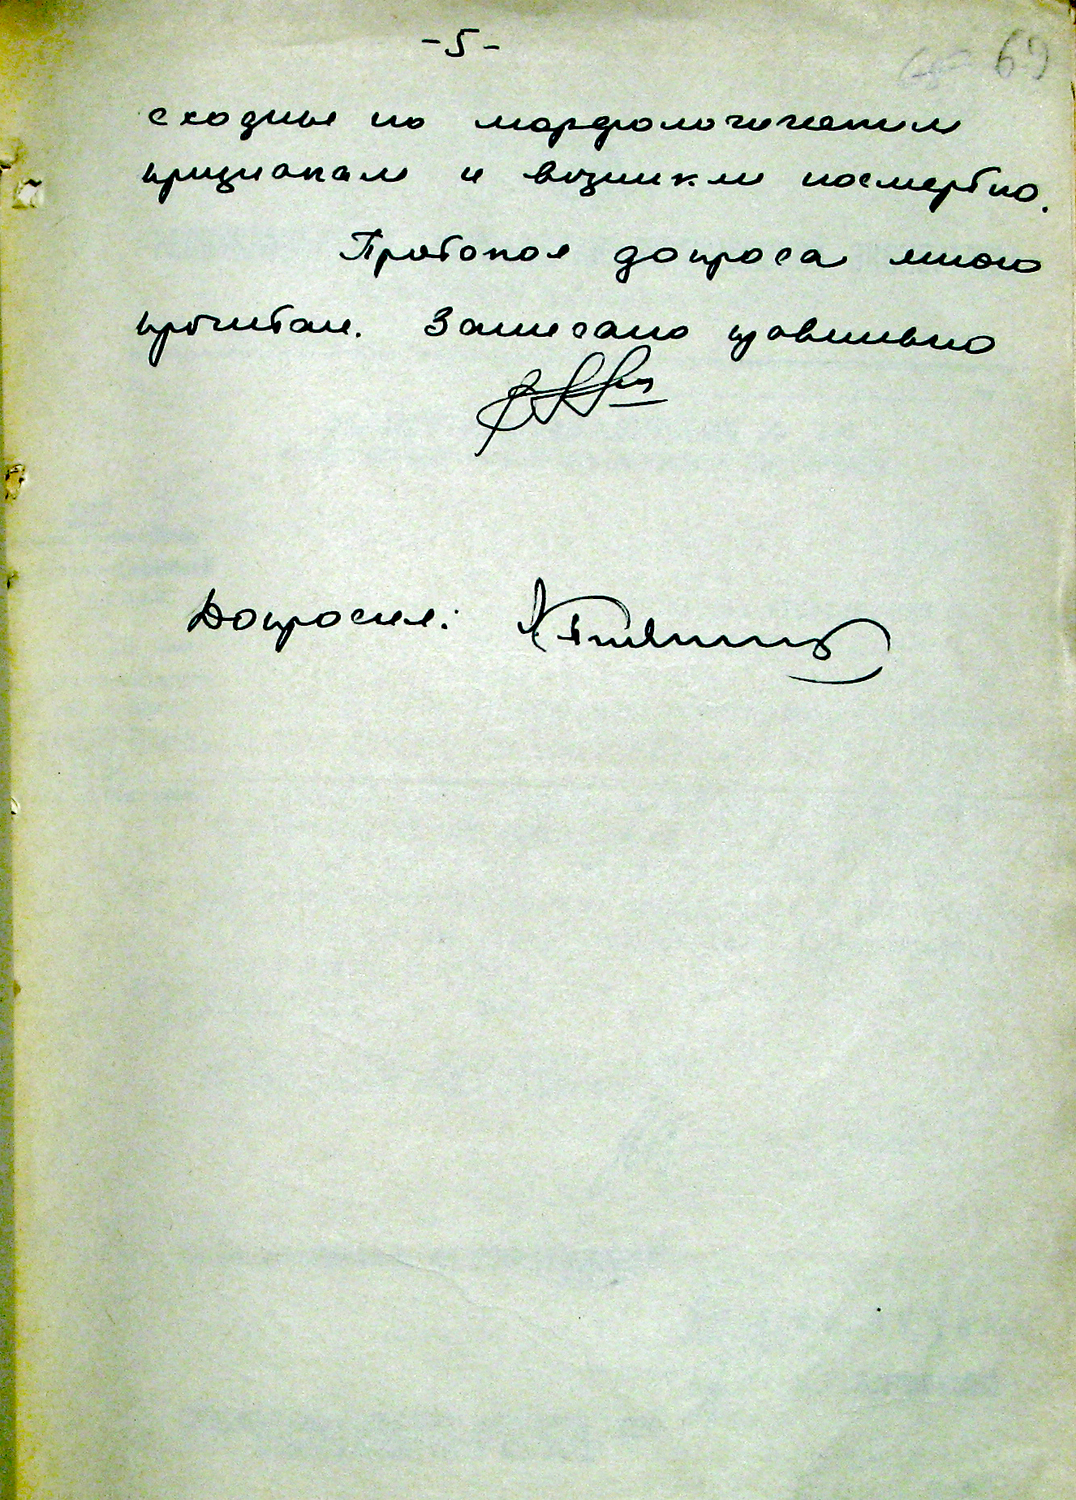 -5-
69
сходные по морфологическим
признакам и возникли посмертно.
Протокол допроса мною
прочитан. Записано правильно
Допросил: